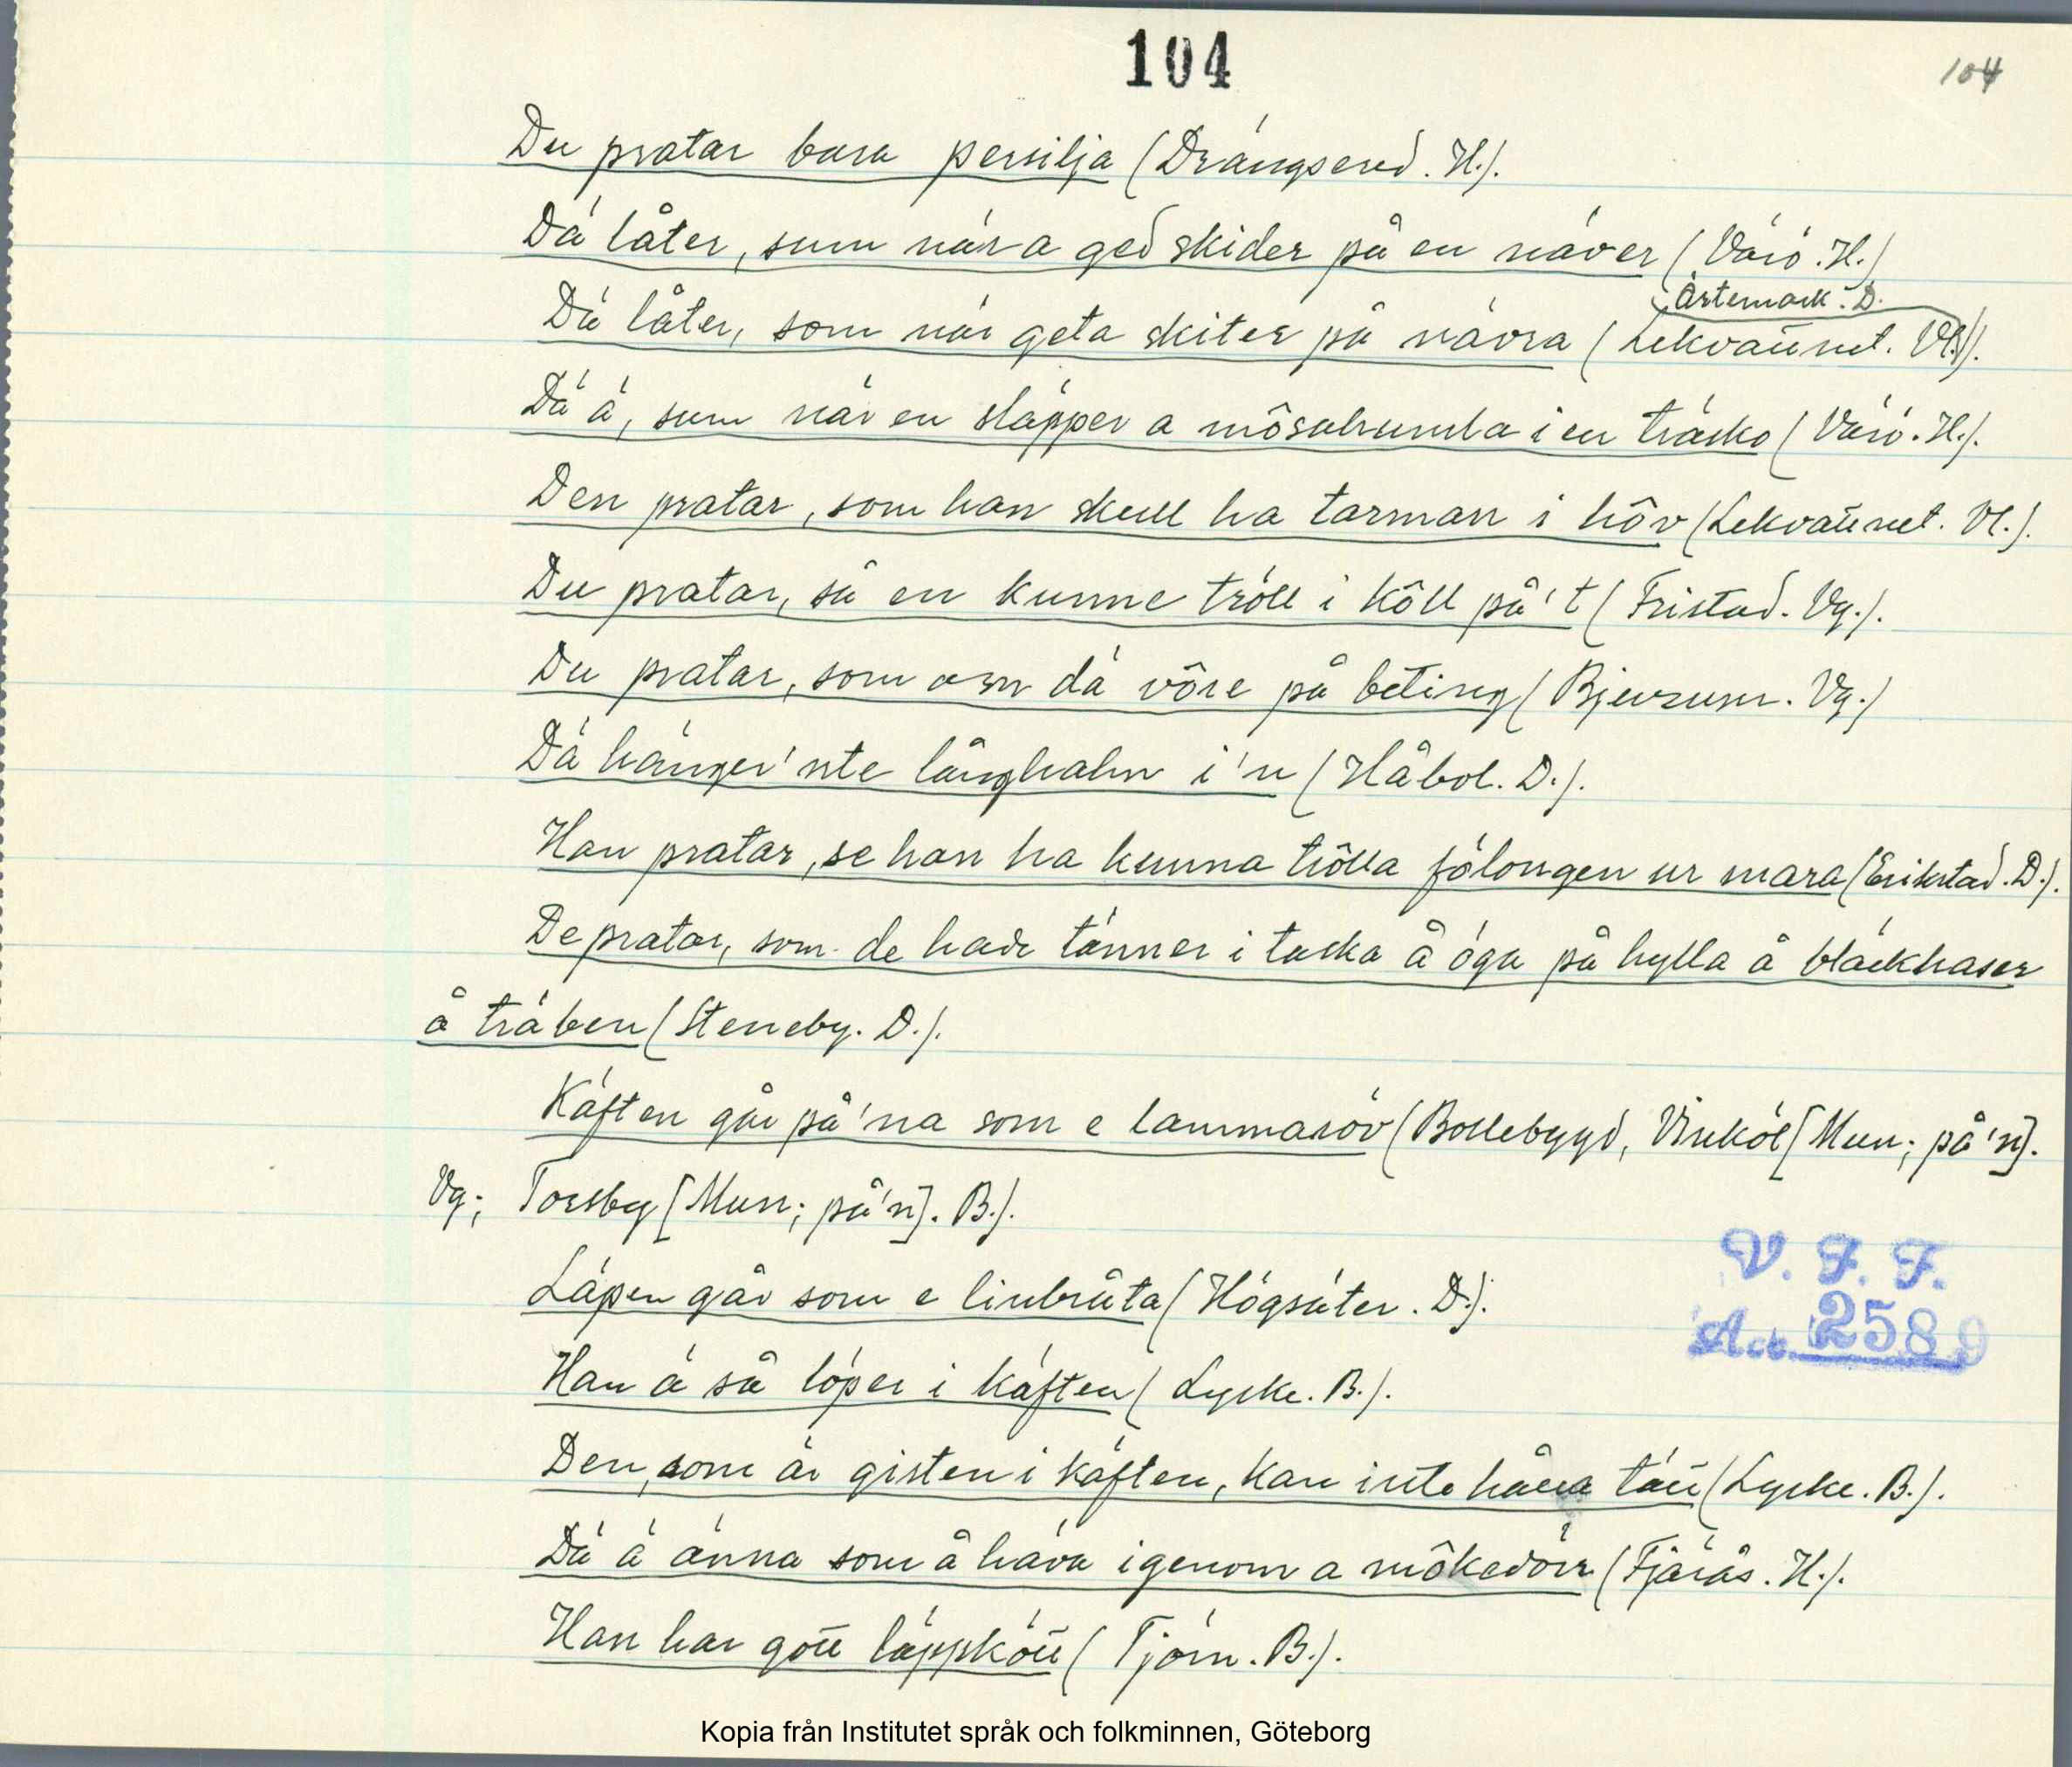 104
104
Du pratar bara persilja (Drängsered. H.).
Dä låter, sum när a ged skider på en näver (Värö. H.)
Artemark. D.
Dä låter, som när geta skiter på nävra (Lekvattnet. Vl.).
Dä ä, sum när en släpper a môsahumla i en träsko (Värö. H.).
Den pratar, som han skull ha tarman i hôv (Lekvattnet. Vl.).
Du pratar, så en kunne tröll i kôll på't (Fristad. Vg.).
Du pratar, som om dä vôre på beting (Bjurum. Vg.)
Dä hänger'nte långhalm i'n (Håbol. D.).
Han pratar, se han ha kunna trôlla fölongen ur mara (Erikstad. D.).
De pratar, som de hade tänner i taska å öga på hylla å bläckhaser
å träben (Steneby. D.).
Käften går på'na som e lammaröv (Bollebygd, Vinköl [Mun; på'n].
Vg; Torsby [Mun; på'n]. B.).
Läpen går som e linbråta (Högsäter. D.).
Han ä så löper i käften (Lycke. B.).
Den, som är gisten i käften, kan inte hålla tätt (Lycke. B.).
Dä ä änna som å häva igenom a môkedörr (Fjärås. H.).
Han har gött läppkött (Tjörn. B.).
V. F. F.
Acc. 2589
Kopia från Institutet språk och folkminnen, Göteborg